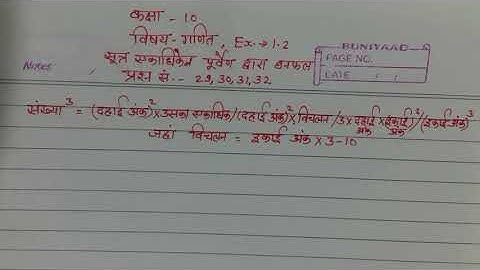 कक्षा - 10
विषय- गणित, Ex.→1.2
सूत्र एकाधिकेन पूर्वेण द्वारा घनफल
प्रश्न सं.- 29,30,31,32
BUNIYAAD
PAGE NO.
DATE / /
Notes
संख्या³ = (दहाई अंक)²×उसका एकाधिक/(दहाई अंक)²×विचलन/3×दहाई अंक×(इकाई अंक)²/(इकाई अंक)³
जहां विचलन = इकाई अंक×3-10